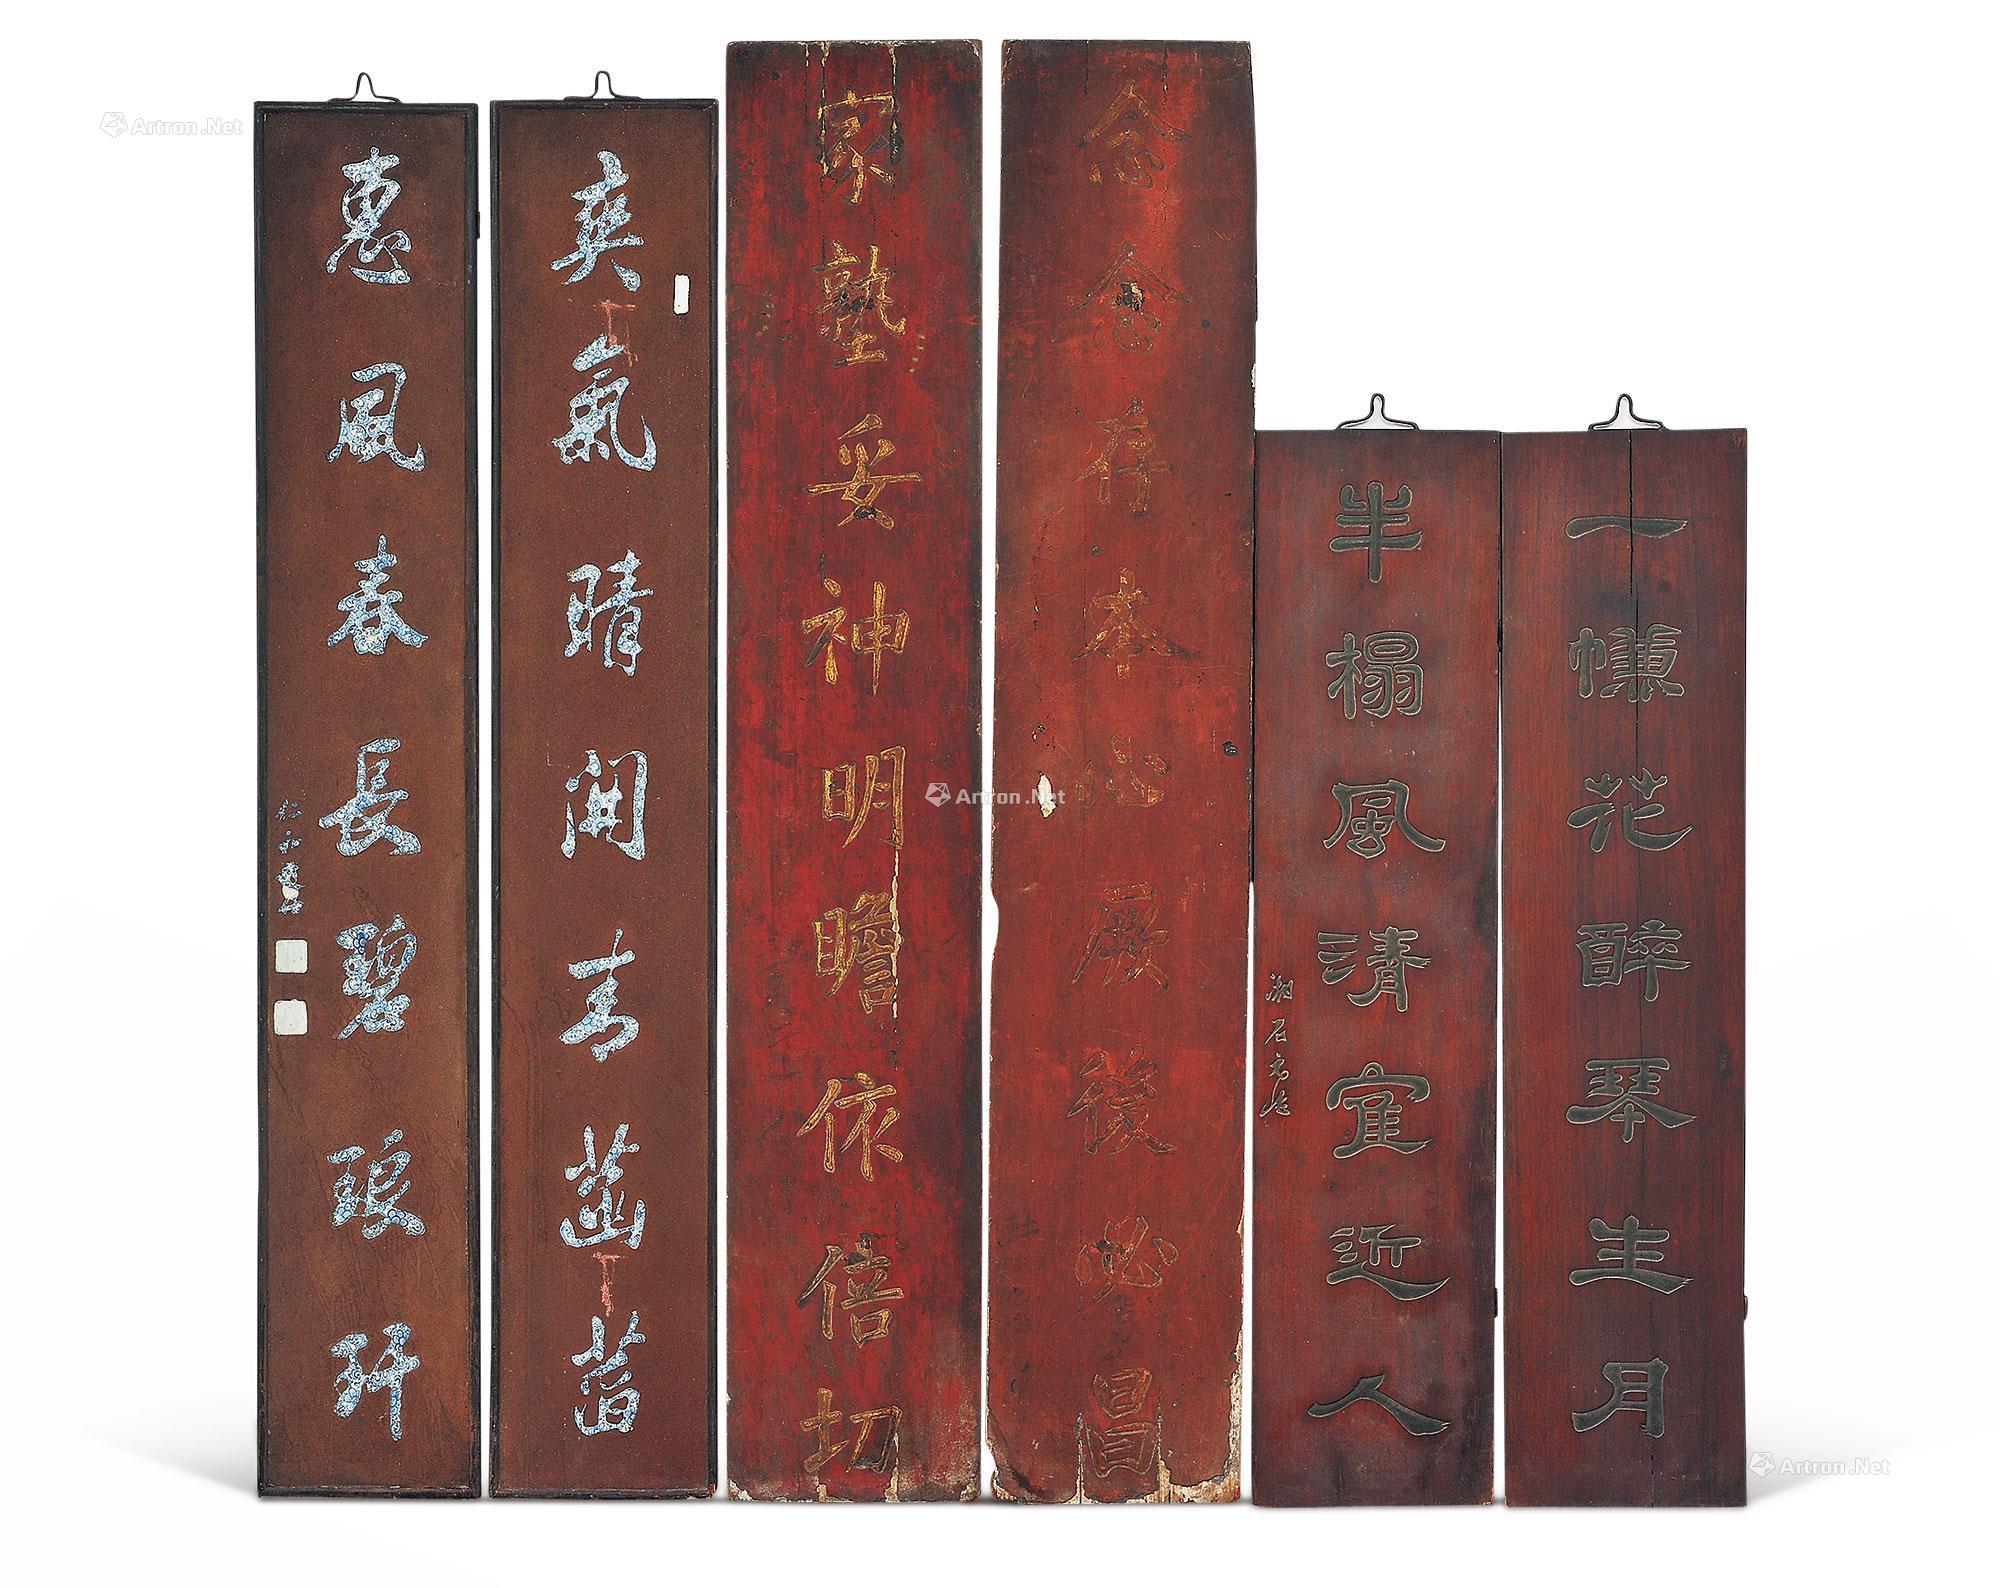 一幰花醉琴生月
半榻風清宜近人
湘石
念念存本心厥後必昌
家塾妥神明瞻依倍切
爽氣晴開青菡萏
惠風春長碧琅玕
Artron.Net
Artron.Net
Artron.Net